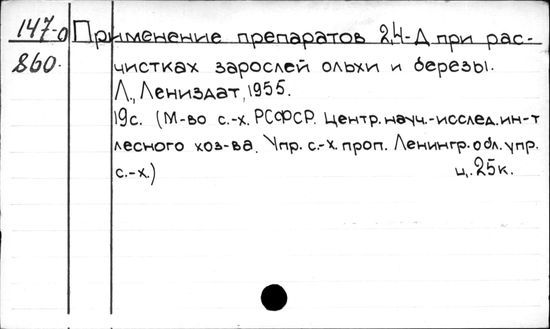 147-0 Применение препаратов 2,4-Д при рас-
860. чистках зарослей ольхи и березы.
Л., Лениздат, 1955.
19с. (М-во с.-х. РСФСР. Центр. науч.-исслед. ин-т
лесного хоз-ва. Упр. с.-х. проп. Ленингр. обл. упр.
с.-х.) ц. 25к.